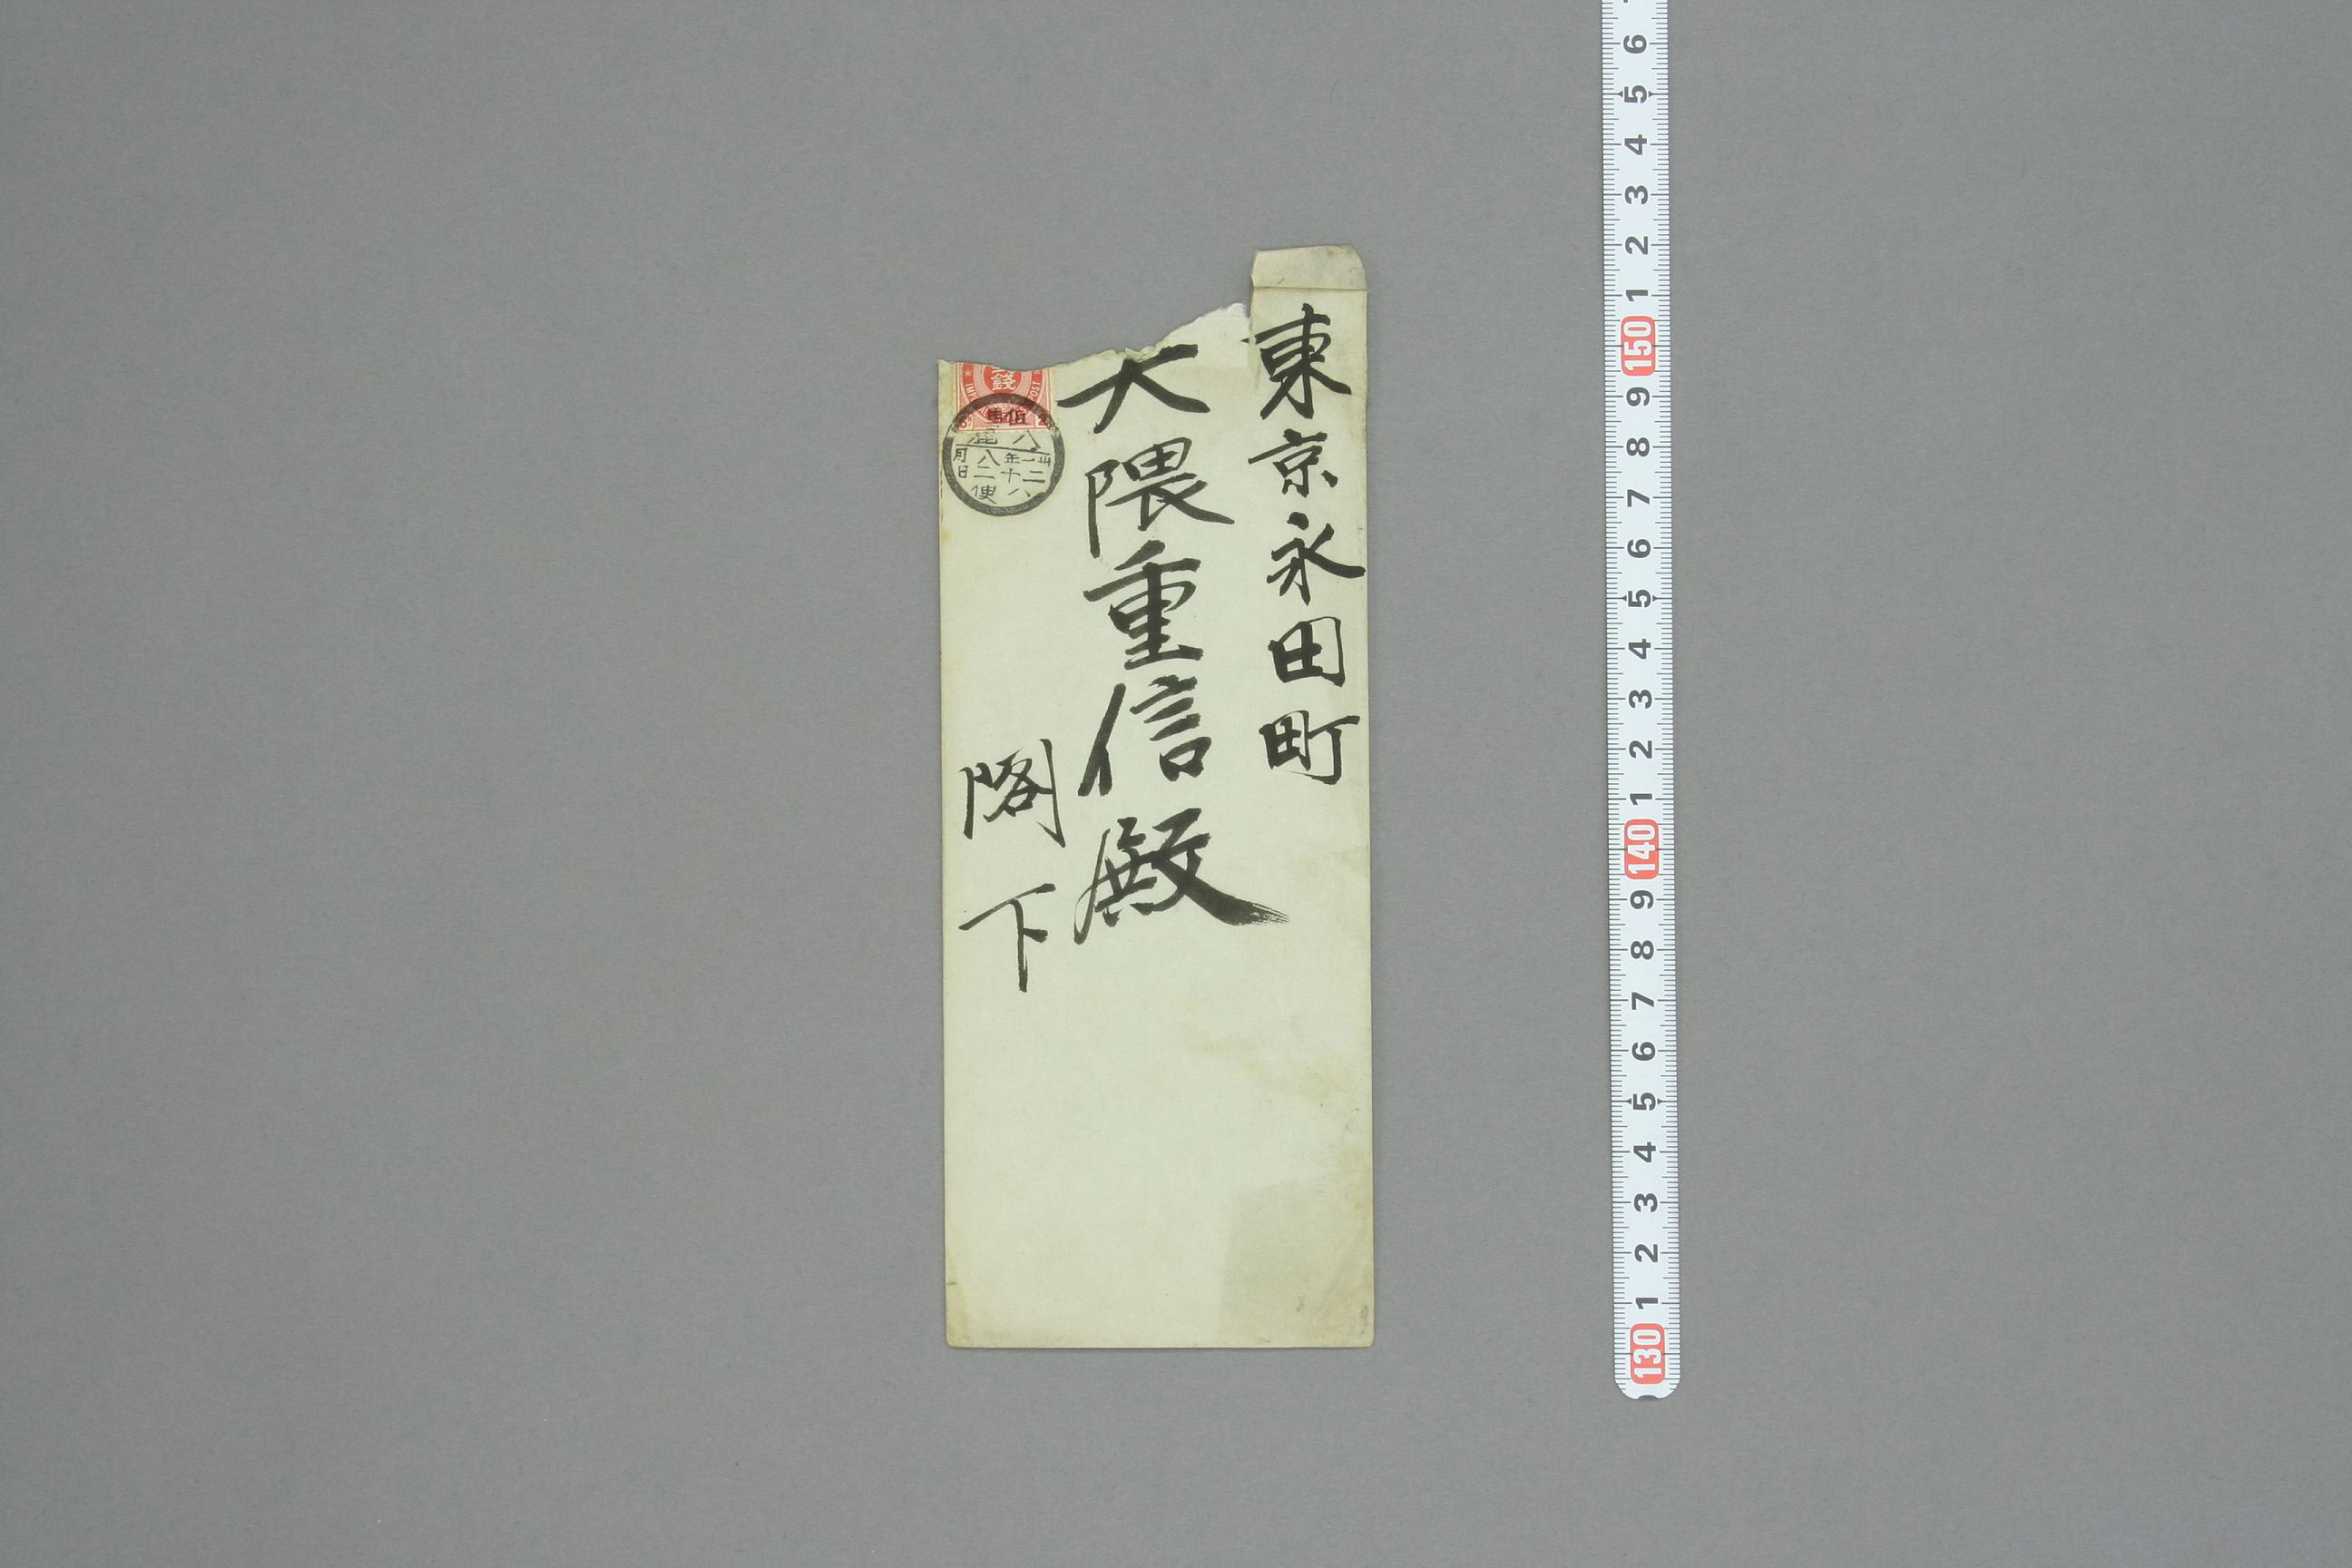 東京永田町
大隈重信殿
閣下
銭
八鹿
年
月
八二
十
二
日
八
便
6
5
4
3
2
1
150
9
8
7
6
5
4
3
2
1
140
9
8
7
6
5
4
3
2
1
130